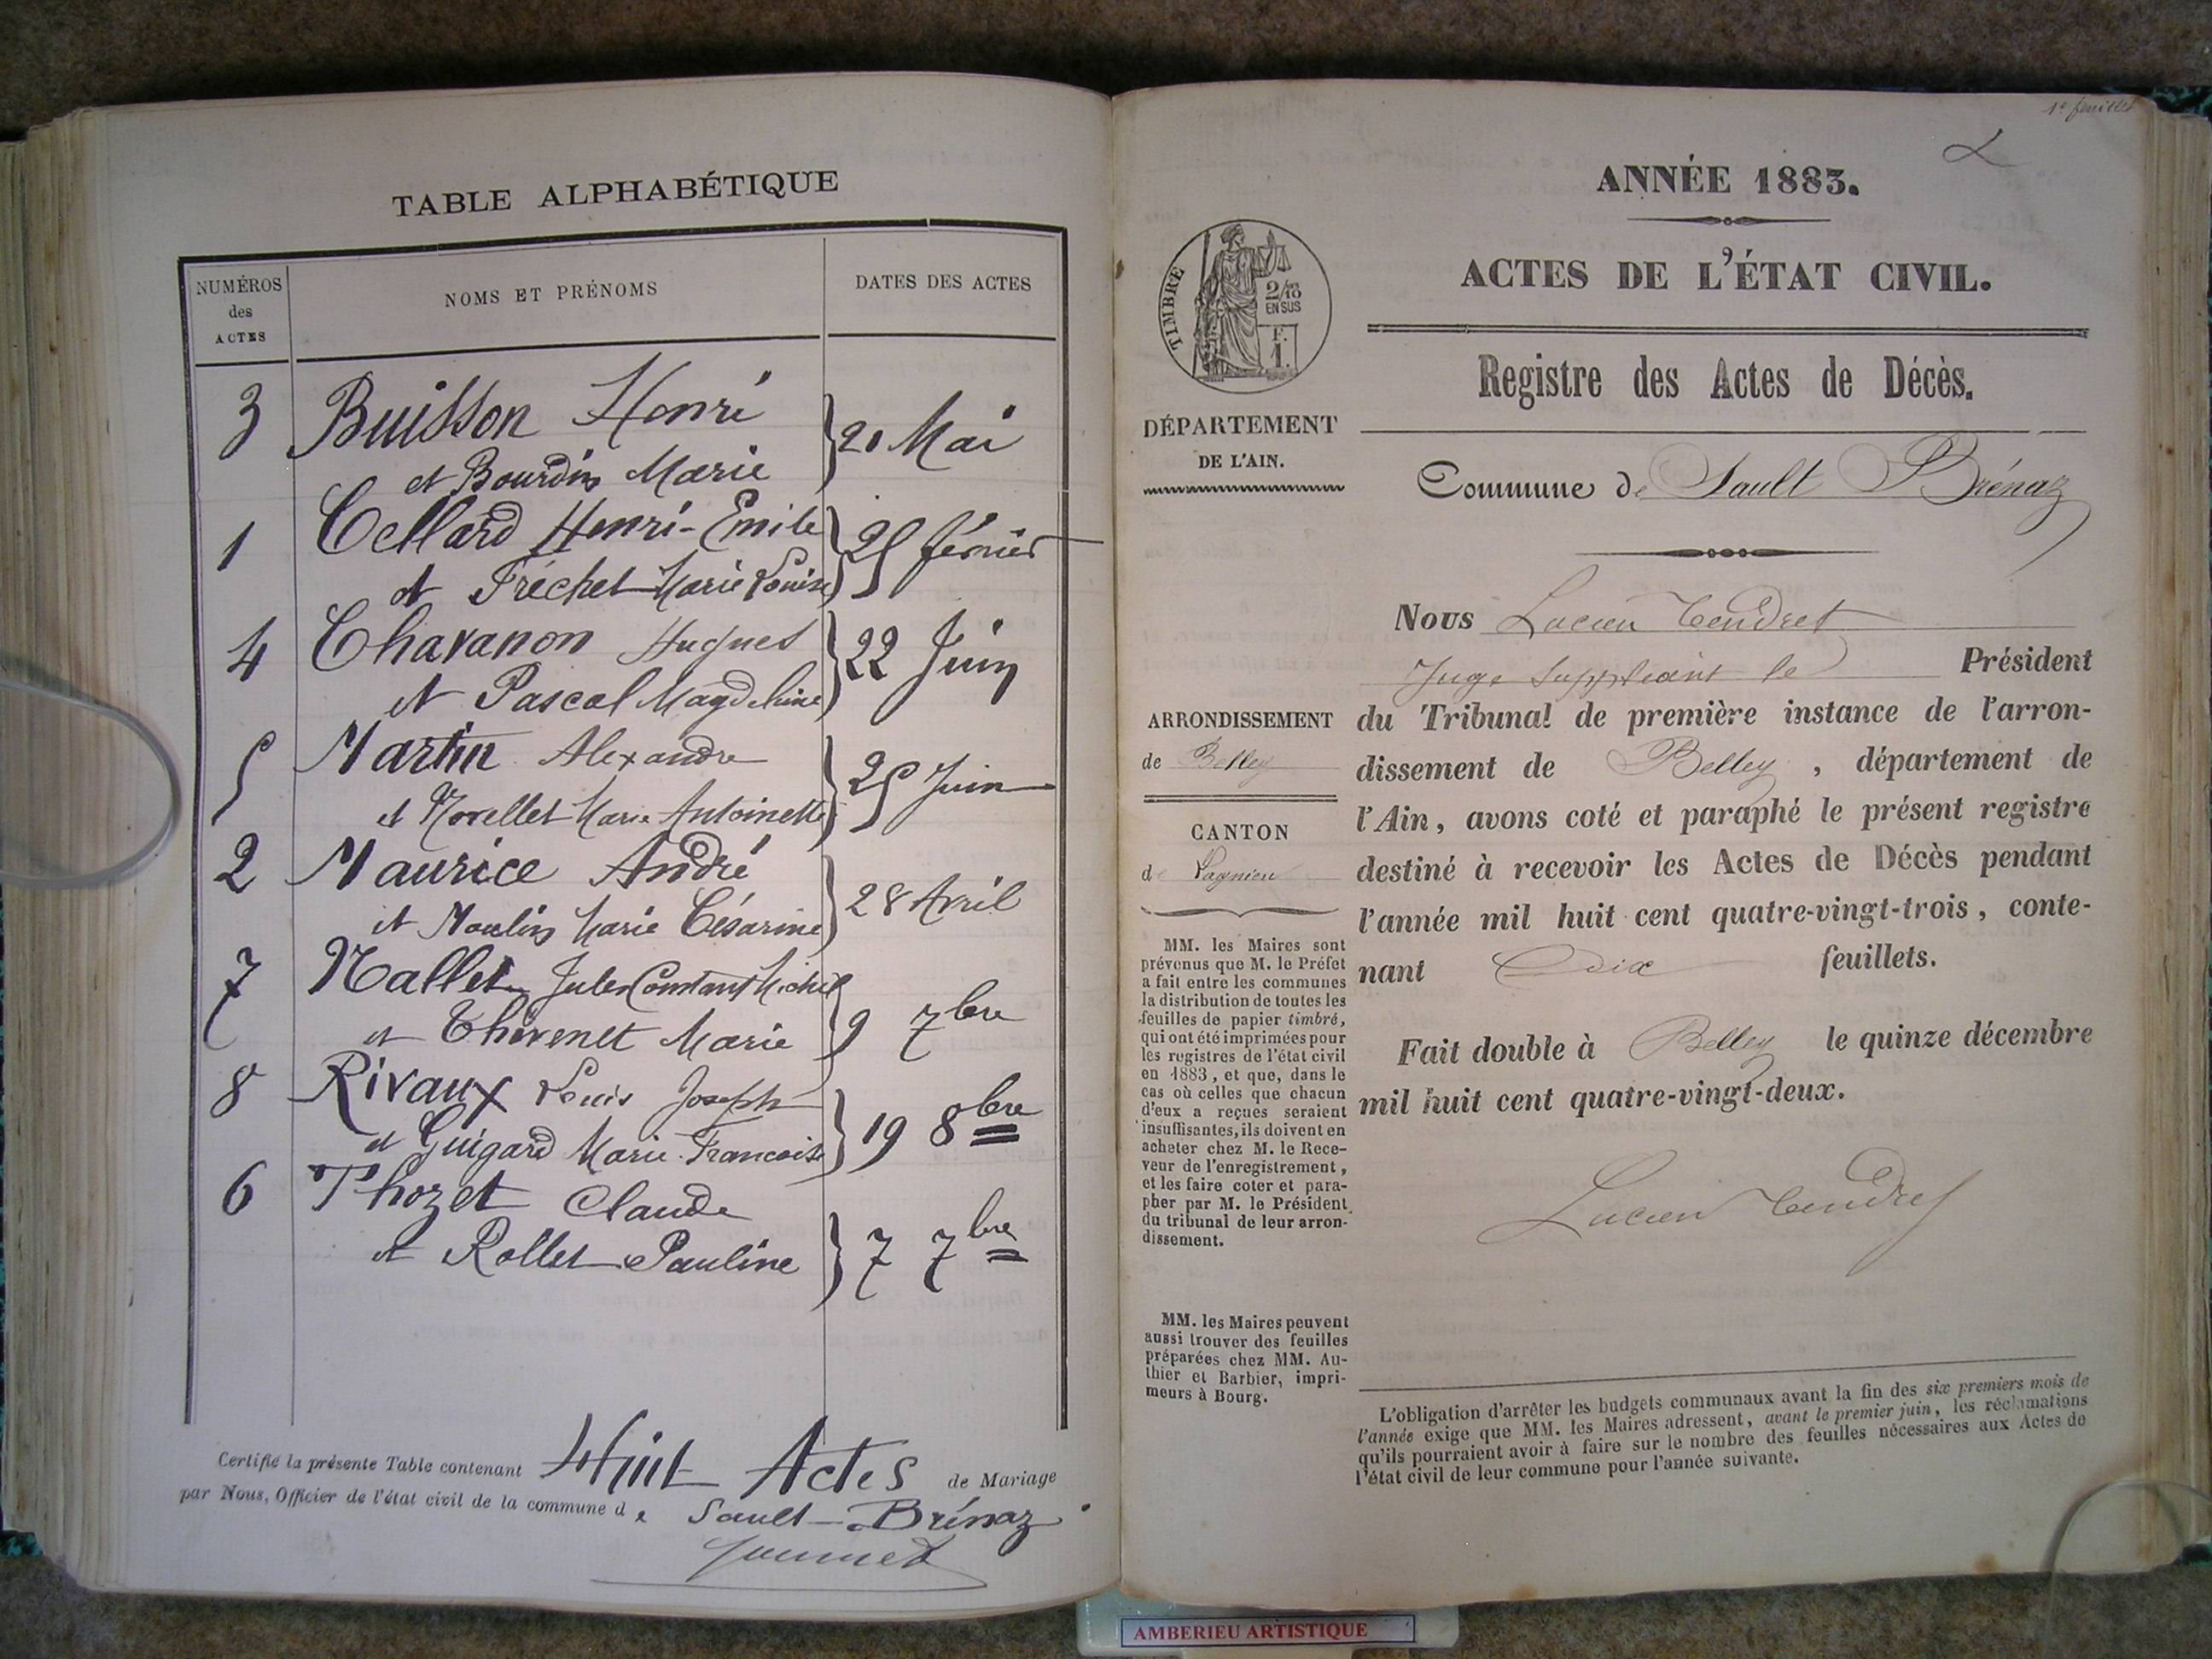 TABLE ALPHABÉTIQUE
NUMÉROS
des
ACTES
NOMS ET PRÉNOMS
DATES DES ACTES
3 Buisson Henri
et Bourdin Marie
20 Mai
1 Cellard Henri-Emile
et Fréchet Marie Louise
25 février
4 Chavanon Hugues
et Pascal Magdeleine
22 Juin
5 Martin Alexandre
et Morellet Marie Antoinette
25 Juin
2 Maurice André
et Moulin Marie Césarine
28 Avril
7 Nallet Jules Constant Michel
et Thévenet Marie
9 7bre
8 Rivaux Louis Joseph
et Guigard Marie Francoise
19 8bre
6 Thozet Claude
et Rollet Pauline
7 7bre
Certifié la présente Table contenant Huit Actes de Mariage
par Nous, Officier de l'état civil de la commune de Sault-Brénaz
1er feuillet
ANNÉE 1883.
ACTES DE L'ÉTAT CIVIL.
Registre des Actes de Décès.
TIMBRE
2/10
EN SUS
F.
1.
DÉPARTEMENT
DE L'AIN.
Commune de Sault Brénaz
ARRONDISSEMENT
de Belley
CANTON
de Lagnieu
MM. les Maires sont
prévenus que M. le Préfet
a fait entre les communes
la distribution de toutes les
feuilles de papier timbré,
qui ont été imprimées pour
les registres de l'état civil
en 1883, et que, dans le
cas où celles que chacun
d'eux a reçues seraient
insuffisantes, ils doivent en
acheter chez M. le Rece-
veur de l'enregistrement,
et les faire coter et para-
pher par M. le Président
du tribunal de leur arron-
dissement.
MM. les Maires peuvent
aussi trouver des feuilles
préparées chez MM. Au-
thier et Barbier, impri-
meurs à Bourg.
Nous Lucien Tendret
Juge suppléant le Président
du Tribunal de première instance de l'arron-
dissement de Belley, département de
l'Ain, avons coté et paraphé le présent registre
destiné à recevoir les Actes de Décès pendant
l'année mil huit cent quatre-vingt-trois, conte-
nant dix feuillets.
Fait double à Belley le quinze décembre
mil huit cent quatre-vingt-deux.
Lucien Tendret
L'obligation d'arrêter les budgets communaux avant la fin des six premiers mois de
l'année exige que MM. les Maires adressent, avant le premier juin, les réclamations
qu'ils pourraient avoir à faire sur le nombre des feuilles nécessaires aux Actes de
l'état civil de leur commune pour l'année suivante.
AMBERIEU ARTISTIQUE